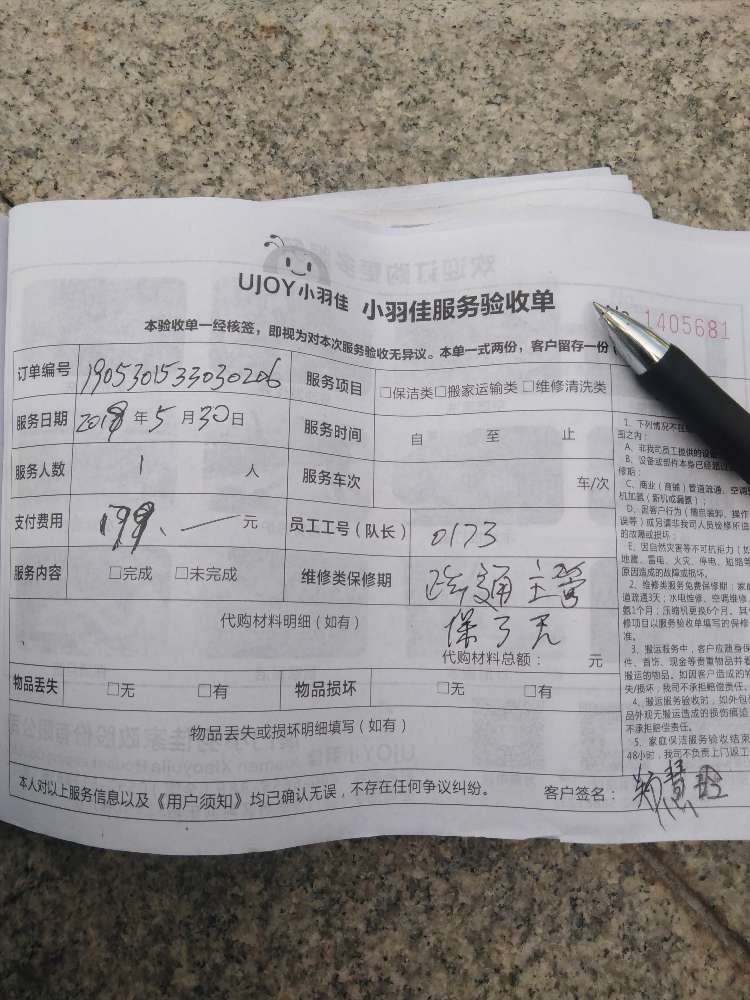 UJOY小羽佳 小羽佳服务验收单
1405681
本验收单一经核签,即视为对本次服务验收无异议。本单一式两份,客户留存一份
订单编号 1905301533030206 服务项目 □保洁类□搬家运输类□维修清洗类
服务日期 2019年5月30日 服务时间 自 至 止
服务人数 1 人 服务车次 车/次
支付费用 元 员工工号(队长) 0173
服务内容 □完成 □未完成 维修类保修期 疏通主管
保3天
代购材料明细(如有)
代购材料总额: 元
物品丢失 □无 □有 物品损坏 □无 □有
物品丢失或损坏明细填写(如有)
本人对以上服务信息以及《用户须知》均已确认无误,不存在任何争议纠纷。 客户签名:
1、下列情况不在
面之内:
A、非我司员工提供的设
B、设备或部件本身已经超过
修期:
C、商业(商铺)管道疏通、空调
机加氟(新机或漏氟);
D、因客户行为(擅自装卸、操作
误等)或另请非我司人员检修所造
的故障或损坏;
E、因自然灾害等不可抗拒力(如
地震、雷电、火灾、停电、短路等
原因造成的故障或损坏。
2、维修类服务免费保修期:家庭
道疏通3天;水电维修、空调维修、
氨1个月;压缩机更换6个月。其
修项目以服务验收单填写的保修
准。
3、搬运服务中,客户应随身保
件、首饰、现金等贵重物品并看
搬运的物品。如因客户造成的物
失/损坏,我司不承担赔偿责任。
4、搬运服务验收时,如外包装
品外观无搬运造成的损伤痕迹
不承担赔偿责任。
5、家庭保洁服务验收结束
48小时,我司不负责上门返工